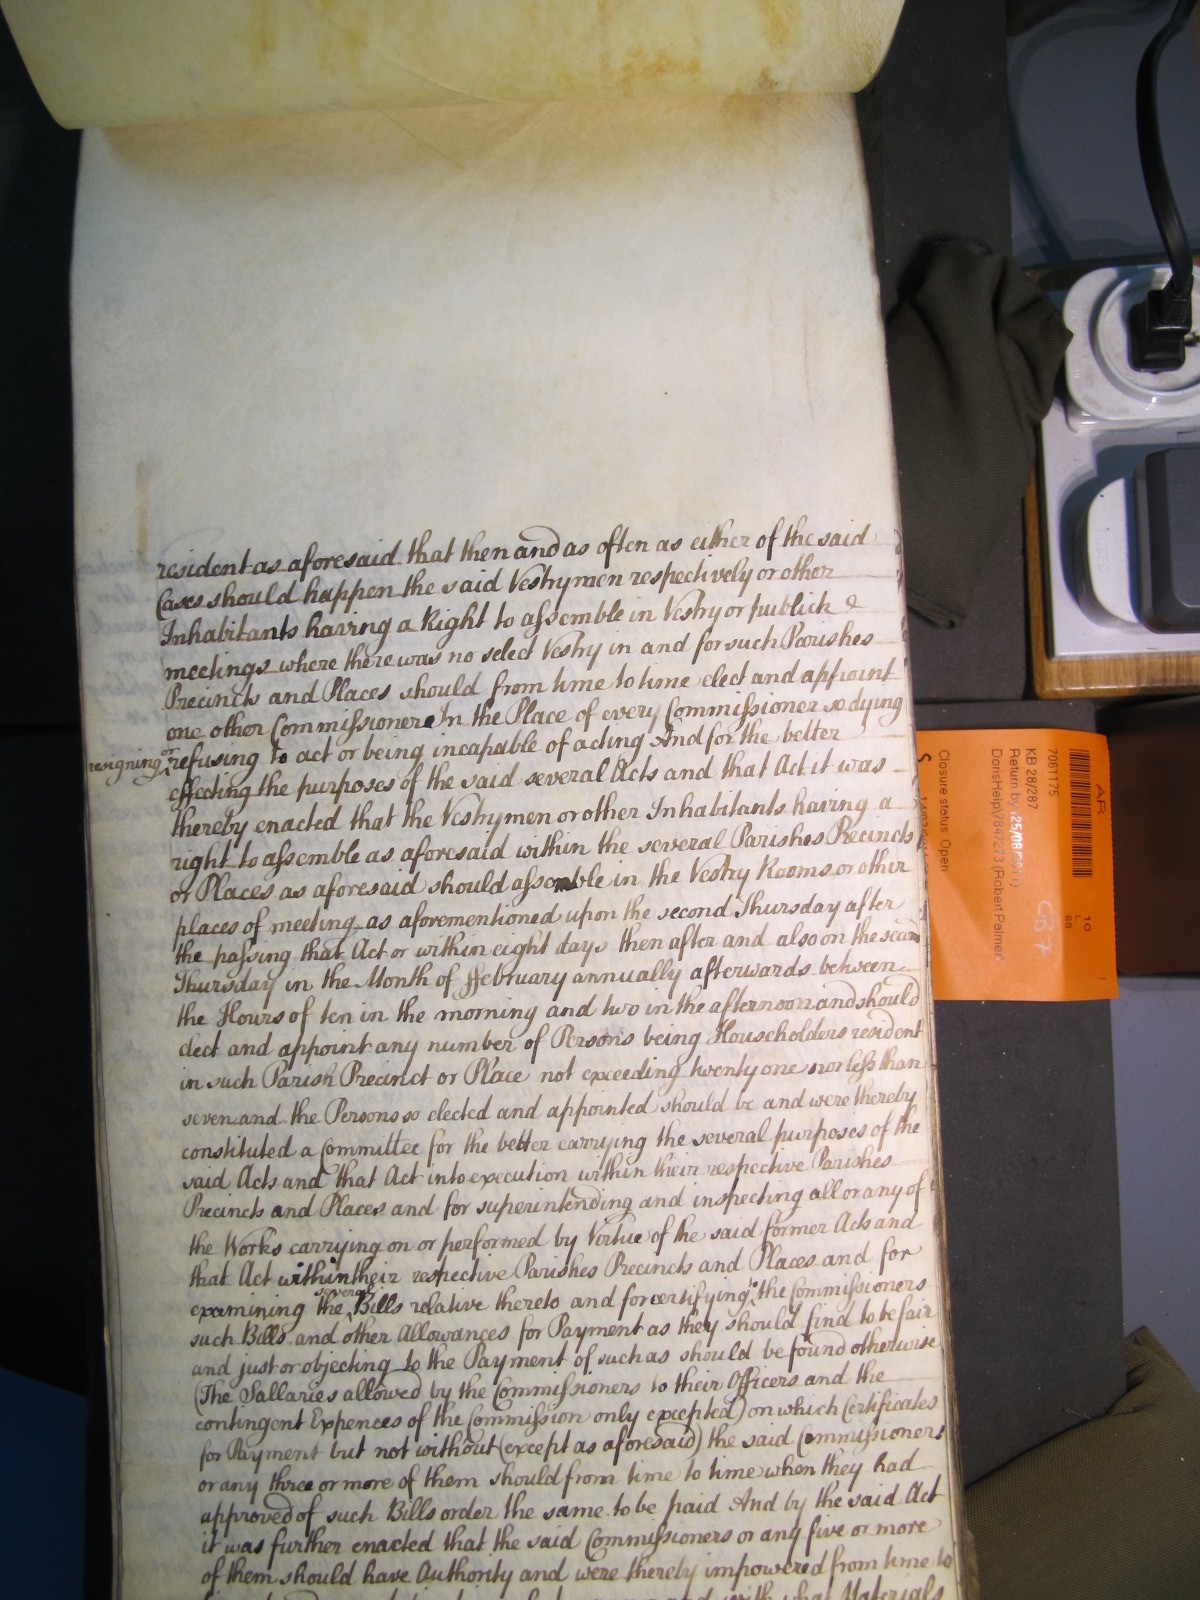 resident as aforesaid that then and as often as either of the said
Cases should happen the said Vestrymen respectively or other
Inhabitants having a Right to assemble in Vestry or publick &
meetings where there was no select Vestry in and for such Parishes
Precincts and Places should from time to time elect and appoint
one other Commissioner In the Place of every Commissioner so dying
resigning or refusing to act or being incapable of acting And for the better
effecting the purposes of the said several Acts and that Act it was
thereby enacted that the Vestrymen or other Inhabitants having a
right to assemble as aforesaid within the several Parishes Precincts
or Places as aforesaid should assemble in the Vestry Rooms or other
places of meeting as aforementioned upon the second Thursday after
the passing that Act or within eight days then after and also on the second
Thursday in the Month of ffebruary annually afterwards between
the Hours of ten in the morning and two in the afternoon and should
elect and appoint any number of Persons being Householders resident
in such Parish Precinct or Place not exceeding twenty one nor less than
seven and the Persons so elected and appointed should be and were thereby
constituted a Committee for the better carrying the several purposes of the
said Acts and that Act into execution within their respective Parishes
Precincts and Places and for superintending and inspecting all or any of
the Works carrying on or performed by Virtue of the said former Acts and
that Act within their respective Parishes Precincts and Places and for
examining the several Bills relative thereto and for certifying the Commissioners
such Bills and other Allowances for Payment as they should find to be fair
and just or objecting to the Payment of such as should be found otherwise
(The Sallaries allowed by the Commissioners to their Officers and the
contingent Expences of the Commission only excepted) on which Certificates
for Payment but not without (except as aforesaid) the said Commissioners
or any three or more of them should from time to time when they had
approved of such Bills order the same to be paid And by the said Act
it was further enacted that the said Commissioners or any five or more
of them should have Authority and were thereby impowered from time to
and with what Materials
AR
7061175
KB 28/287
Return by (25/08/2011)
DorisHelp\7847273 (Robert Palmer)
Closure status: Open
S
10
L
68